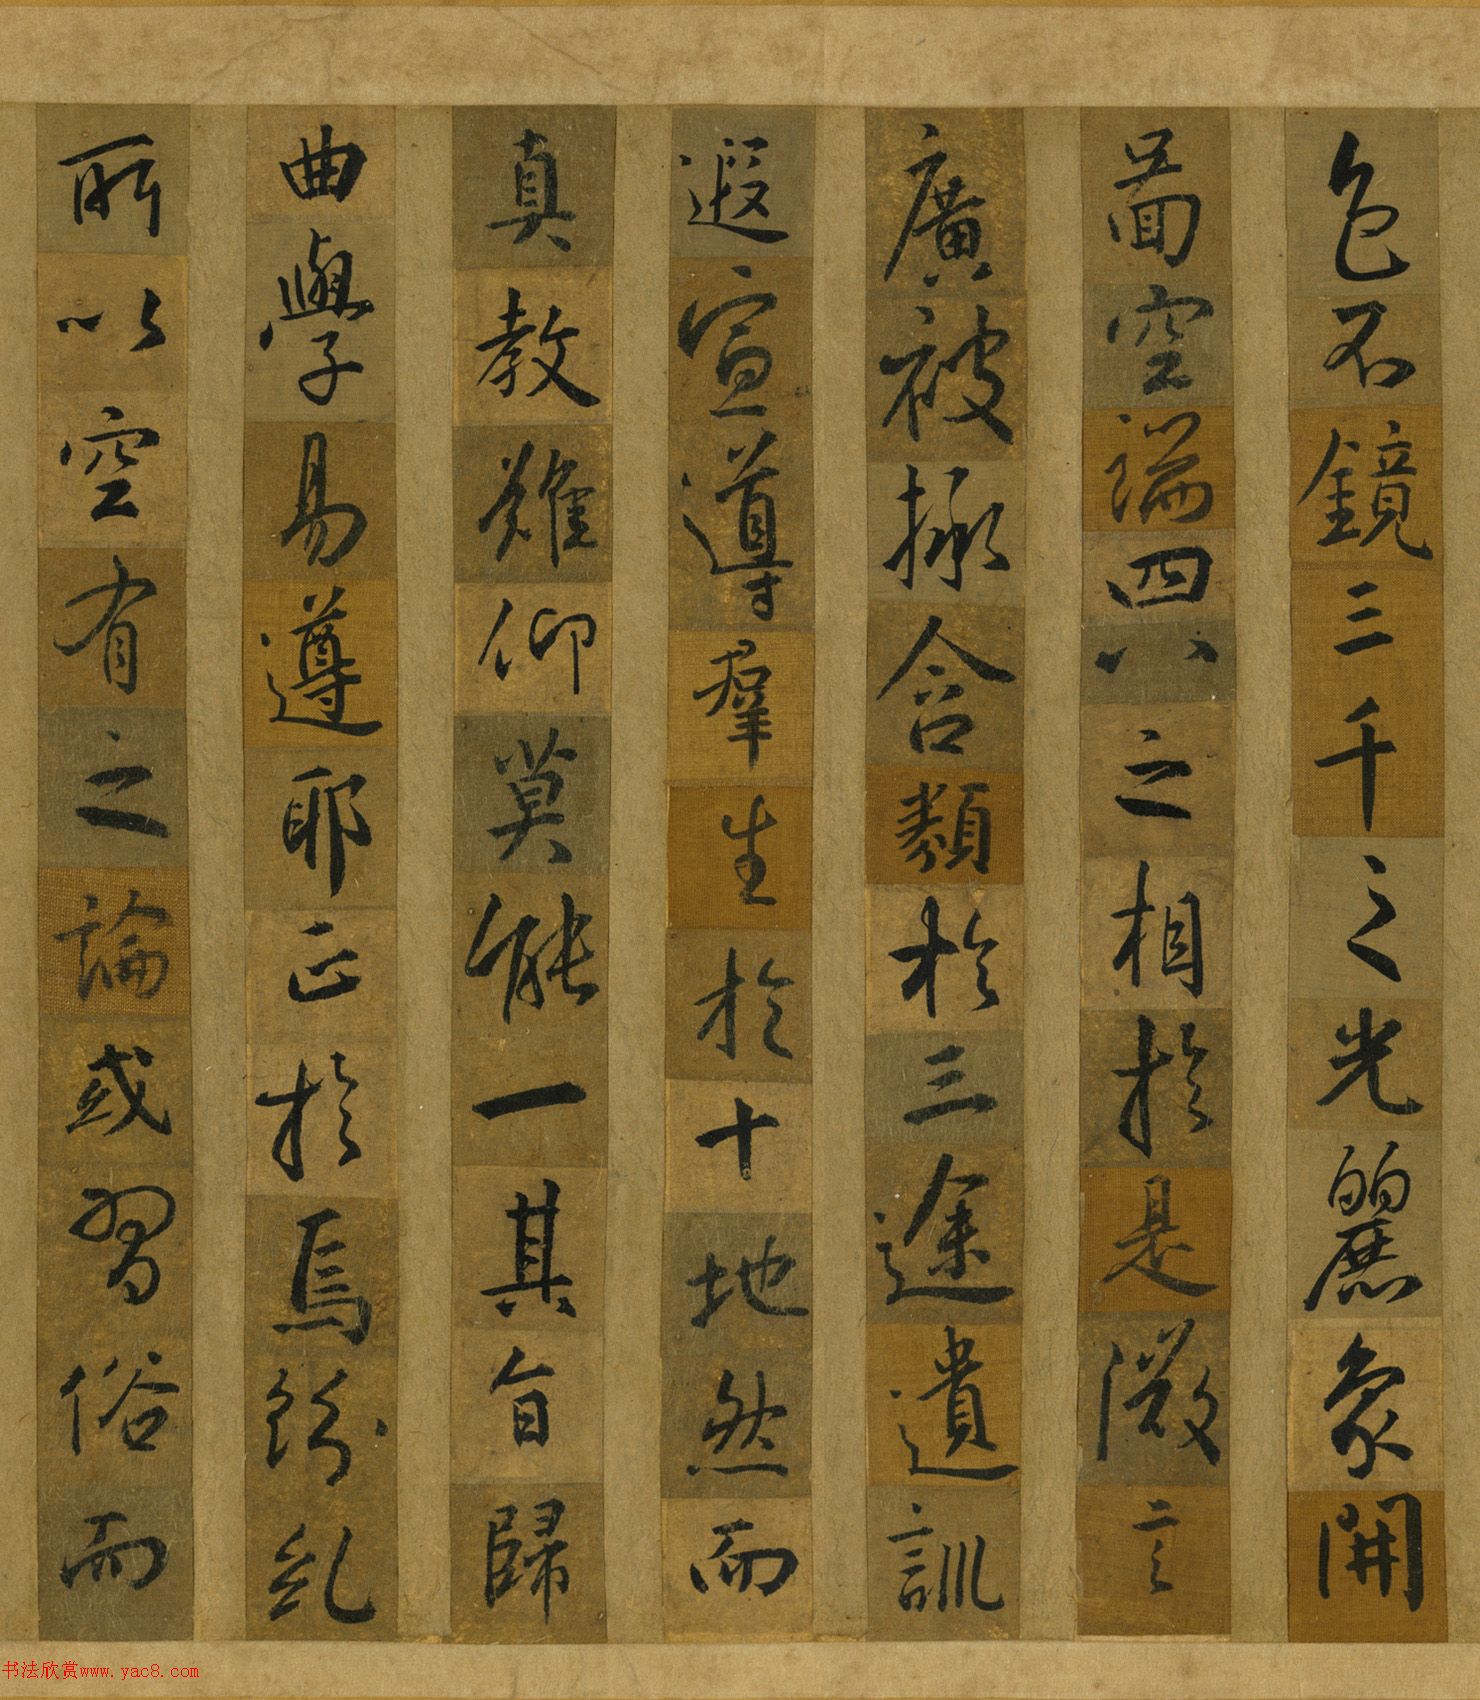 色不鏡三千之光麗象開
圖空端四八之相於是微言
廣被拯含類於三途遺訓
遐宣導羣生於十地然而
真教難仰莫能一其旨歸
曲學易遵耶正於焉紛糺
所以空有之論或習俗而
书法欣赏www.yac8.com